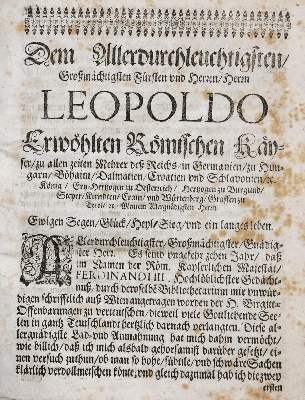 Dem Allerdurchleuchtigsten/
Großmächtigsten Fürsten vnd Herrn/ Herrn
LEOPOLDO
Erwöhlten Römischen Käy-
ser/ zu allen zeiten Mehrer deß Reichs/ in Germanien/ zu Hun-
garn/ Böhaim/ Dalmatien/ Croatien vnd Sclavonien/ ꝛc.
König/ Ertz-Hertzogen zu Oesterreich/ Hertzogen zu Burgund/
Steyer/ Kärndten/ Crain/ vnd Würtenberg/ Graffen zu
Tyrol/ ꝛc. Meinem Allergnädigsten Herrn
Ewigen Segen/ Glück/ Heyl/ Sieg/ vnd ein langes leben.
Allerdurchleuchtigster/ Großmächtigster/ Gnädig-
ster Herr. Es seynd vngefehr zehen Jahr/ daß
im Namen der Röm. Kayserlichen Majestät/
FERDINAND III. Hochlöblichster Gedächt-
nuß/ durch deroselbē Bibliothecarium mir vnwür-
digen schrifftlich auß Wien angetragen worden der H. Birgittæ
Offenbarungen zu verteutschen/ dieweil viele Gottliebende See-
len in gantz Teutschland hertzlich darnach verlangten. Diese al-
lergnädigste Lad- vnd Anmahnung hat mich dahin vermöcht/
wie billich/ daß ich mich alsbald gehorsamst darüber gesetzt/ ei-
nen versuch zuthun/ ob man so hohe/ subtile/ vnd schwäre Sachen
klärlich verdollmetschen könte/ vnd gleich dazumal hab ich die zwey
ersten